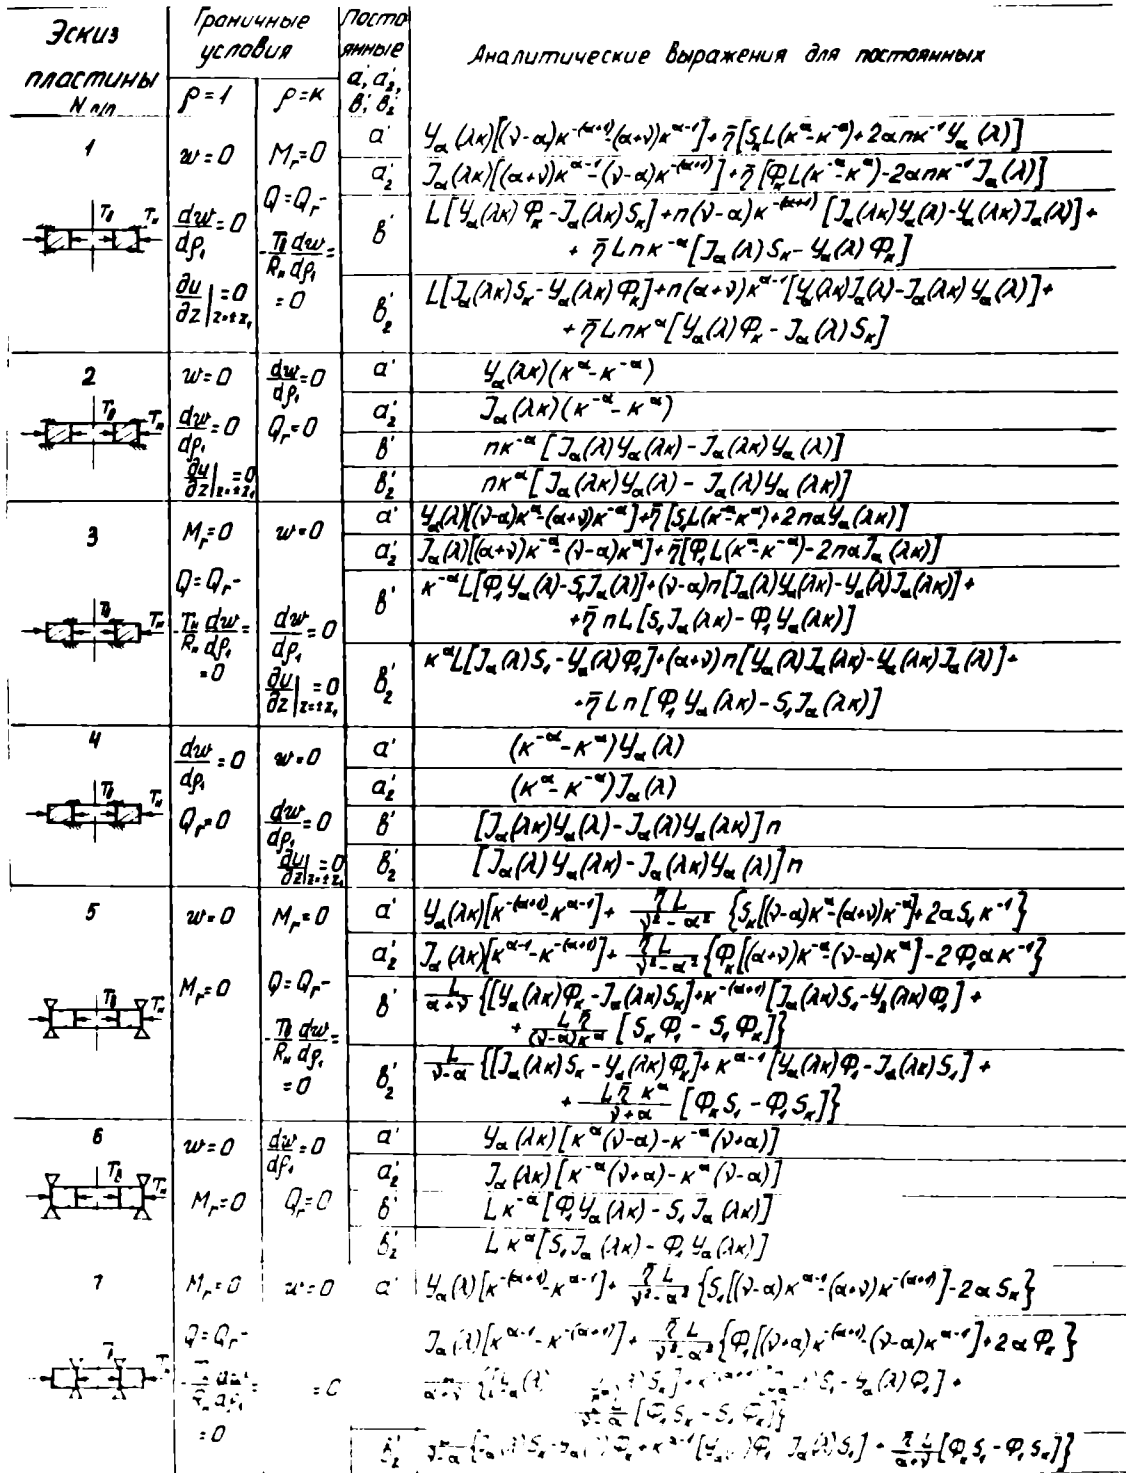 Эскиз пластины N п/п
Граничные условия
ρ=1
ρ=κ
Посто янные a', a'₂, в', в'₂
Аналитические выражения для постоянных
1
T₈ Tₙ
w=0
dw/dρ₁=0
∂u/∂z|z=±z₁=0
Mᵣ=0
Q=Qᵣ-
-T₈/Rₙ dw/dρ₁=
=0
a' Y_α(λκ)[(ν-α)κ^-(α+1)-(α+ν)κ^(α-1)]+η̄[S_κL(κ^α-κ^-α)+2αnκ^-1Y_α(λ)]
a'₂ J_α(λκ)[(α+ν)κ^(α-1)-(ν-α)κ^-(α+1)]+η̄[Φ_κL(κ^-α-κ^α)-2αnκ^-1J_α(λ)]
в' L[Y_α(λκ)Φ_κ-J_α(λκ)S_κ]+n(ν-α)κ^-(α+1)[J_α(λκ)Y_α(λ)-Y_α(λκ)J_α(λ)]+
+η̄Lnκ^-α[J_α(λ)S_κ-Y_α(λ)Φ_κ]
в'₂ L[J_α(λκ)S_κ-Y_α(λκ)Φ_κ]+n(α+ν)κ^(α-1)[Y_α(λκ)J_α(λ)-J_α(λκ)Y_α(λ)]+
+η̄Lnκ^α[Y_α(λ)Φ_κ-J_α(λ)S_κ]
2
T₈ Tₙ
w=0
dw/dρ₁=0
∂u/∂z|z=±z₁=0
dw/dρ₁=0
Qᵣ=0
a' Y_α(λκ)(κ^α-κ^-α)
a'₂ J_α(λκ)(κ^-α-κ^α)
в' nκ^-α[J_α(λ)Y_α(λκ)-J_α(λκ)Y_α(λ)]
в'₂ nκ^α[J_α(λκ)Y_α(λ)-J_α(λ)Y_α(λκ)]
3
T₈ Tₙ
Mᵣ=0
Q=Qᵣ-
-Tₙ/Rₙ dw/dρ₁=
=0
w=0
dw/dρ₁=0
∂u/∂z|z=±z₁=0
a' Y_α(λ)[(ν-α)κ^α-(α+ν)κ^-α]+η̄[S₁L(κ^-α-κ^α)+2nαY_α(λκ)]
a'₂ J_α(λ)[(α+ν)κ^-α-(ν-α)κ^α]+η̄[Φ₁L(κ^α-κ^-α)-2nαJ_α(λκ)]
в' κ^-αL[Φ₁Y_α(λ)-S₁J_α(λ)]+(ν-α)n[J_α(λ)Y_α(λκ)-Y_α(λ)J_α(λκ)]+
+η̄nL[S₁J_α(λκ)-Φ₁Y_α(λκ)]
в'₂ κ^αL[J_α(λ)S₁-Y_α(λ)Φ₁]+(α+ν)n[Y_α(λ)J_α(λκ)-Y_α(λκ)J_α(λ)]+
+η̄Ln[Φ₁Y_α(λκ)-S₁J_α(λκ)]
4
T₈ Tₙ
dw/dρ₁=0
Qᵣ=0
w=0
dw/dρ₁=0
∂u/∂z|z=±z₁=0
a' (κ^-α-κ^α)Y_α(λ)
a'₂ (κ^α-κ^-α)J_α(λ)
в' [J_α(λκ)Y_α(λ)-J_α(λ)Y_α(λκ)]n
в'₂ [J_α(λ)Y_α(λκ)-J_α(λκ)Y_α(λ)]n
5
T₈ Tₙ
w=0
Mᵣ=0
Mᵣ=0
Q=Qᵣ-
-T₈/Rₙ dw/dρ₁=
=0
a' Y_α(λκ)[κ^-(α+1)-κ^(α-1)]+η̄L/(ν²-α²){S_κ[(ν-α)κ^α-(α+ν)κ^-α]+2αS₁κ^-1}
a'₂ J_α(λκ)[κ^(α-1)-κ^-(α+1)]+η̄L/(ν²-α²){Φ_κ[(α+ν)κ^-α-(ν-α)κ^α]-2Φ₁ακ^-1}
в' L/(α+ν){[Y_α(λκ)Φ_κ-J_α(λκ)S_κ]+κ^-(α+1)[J_α(λκ)S₁-Y_α(λκ)Φ₁]+
+Lη̄/((ν-α)κ^α)[S_κΦ₁-S₁Φ_κ]}
в'₂ L/(ν-α){[J_α(λκ)S_κ-Y_α(λκ)Φ_κ]+κ^(α-1)[Y_α(λκ)Φ₁-J_α(λκ)S₁]+
+Lη̄κ^α/(ν+α)[Φ_κS₁-Φ₁S_κ]}
6
T₈ Tₙ
w=0
Mᵣ=0
dw/dρ₁=0
Qᵣ=0
a' Y_α(λκ)[κ^α(ν-α)-κ^-α(ν+α)]
a'₂ J_α(λκ)[κ^-α(ν+α)-κ^α(ν-α)]
в' Lκ^-α[Φ₁Y_α(λκ)-S₁J_α(λκ)]
в'₂ Lκ^α[S₁J_α(λκ)-Φ₁Y_α(λκ)]
7
Mᵣ=0
Q=Qᵣ-
=0
w=0
=0
a' Y_α(λ)[κ^-(α+1)-κ^(α-1)]+η̄L/(ν²-α²){S₁[(ν-α)κ^(α-1)-(α+ν)κ^-(α+1)]-2αS_κ}
J_α(λ)[κ^(α-1)-κ^-(α+1)]+η̄L/(ν²-α²){Φ₁[(ν+α)κ^-(α+1)-(ν-α)κ^(α-1)]+2αΦ_κ}
S₁-Y_α(λ)Φ₁]+
[Φ₁S_κ-S₁Φ_κ]}
в'₂
J_α(λ)S₁]+η̄L/(α+ν)[Φ_κS₁-Φ₁S_κ]}